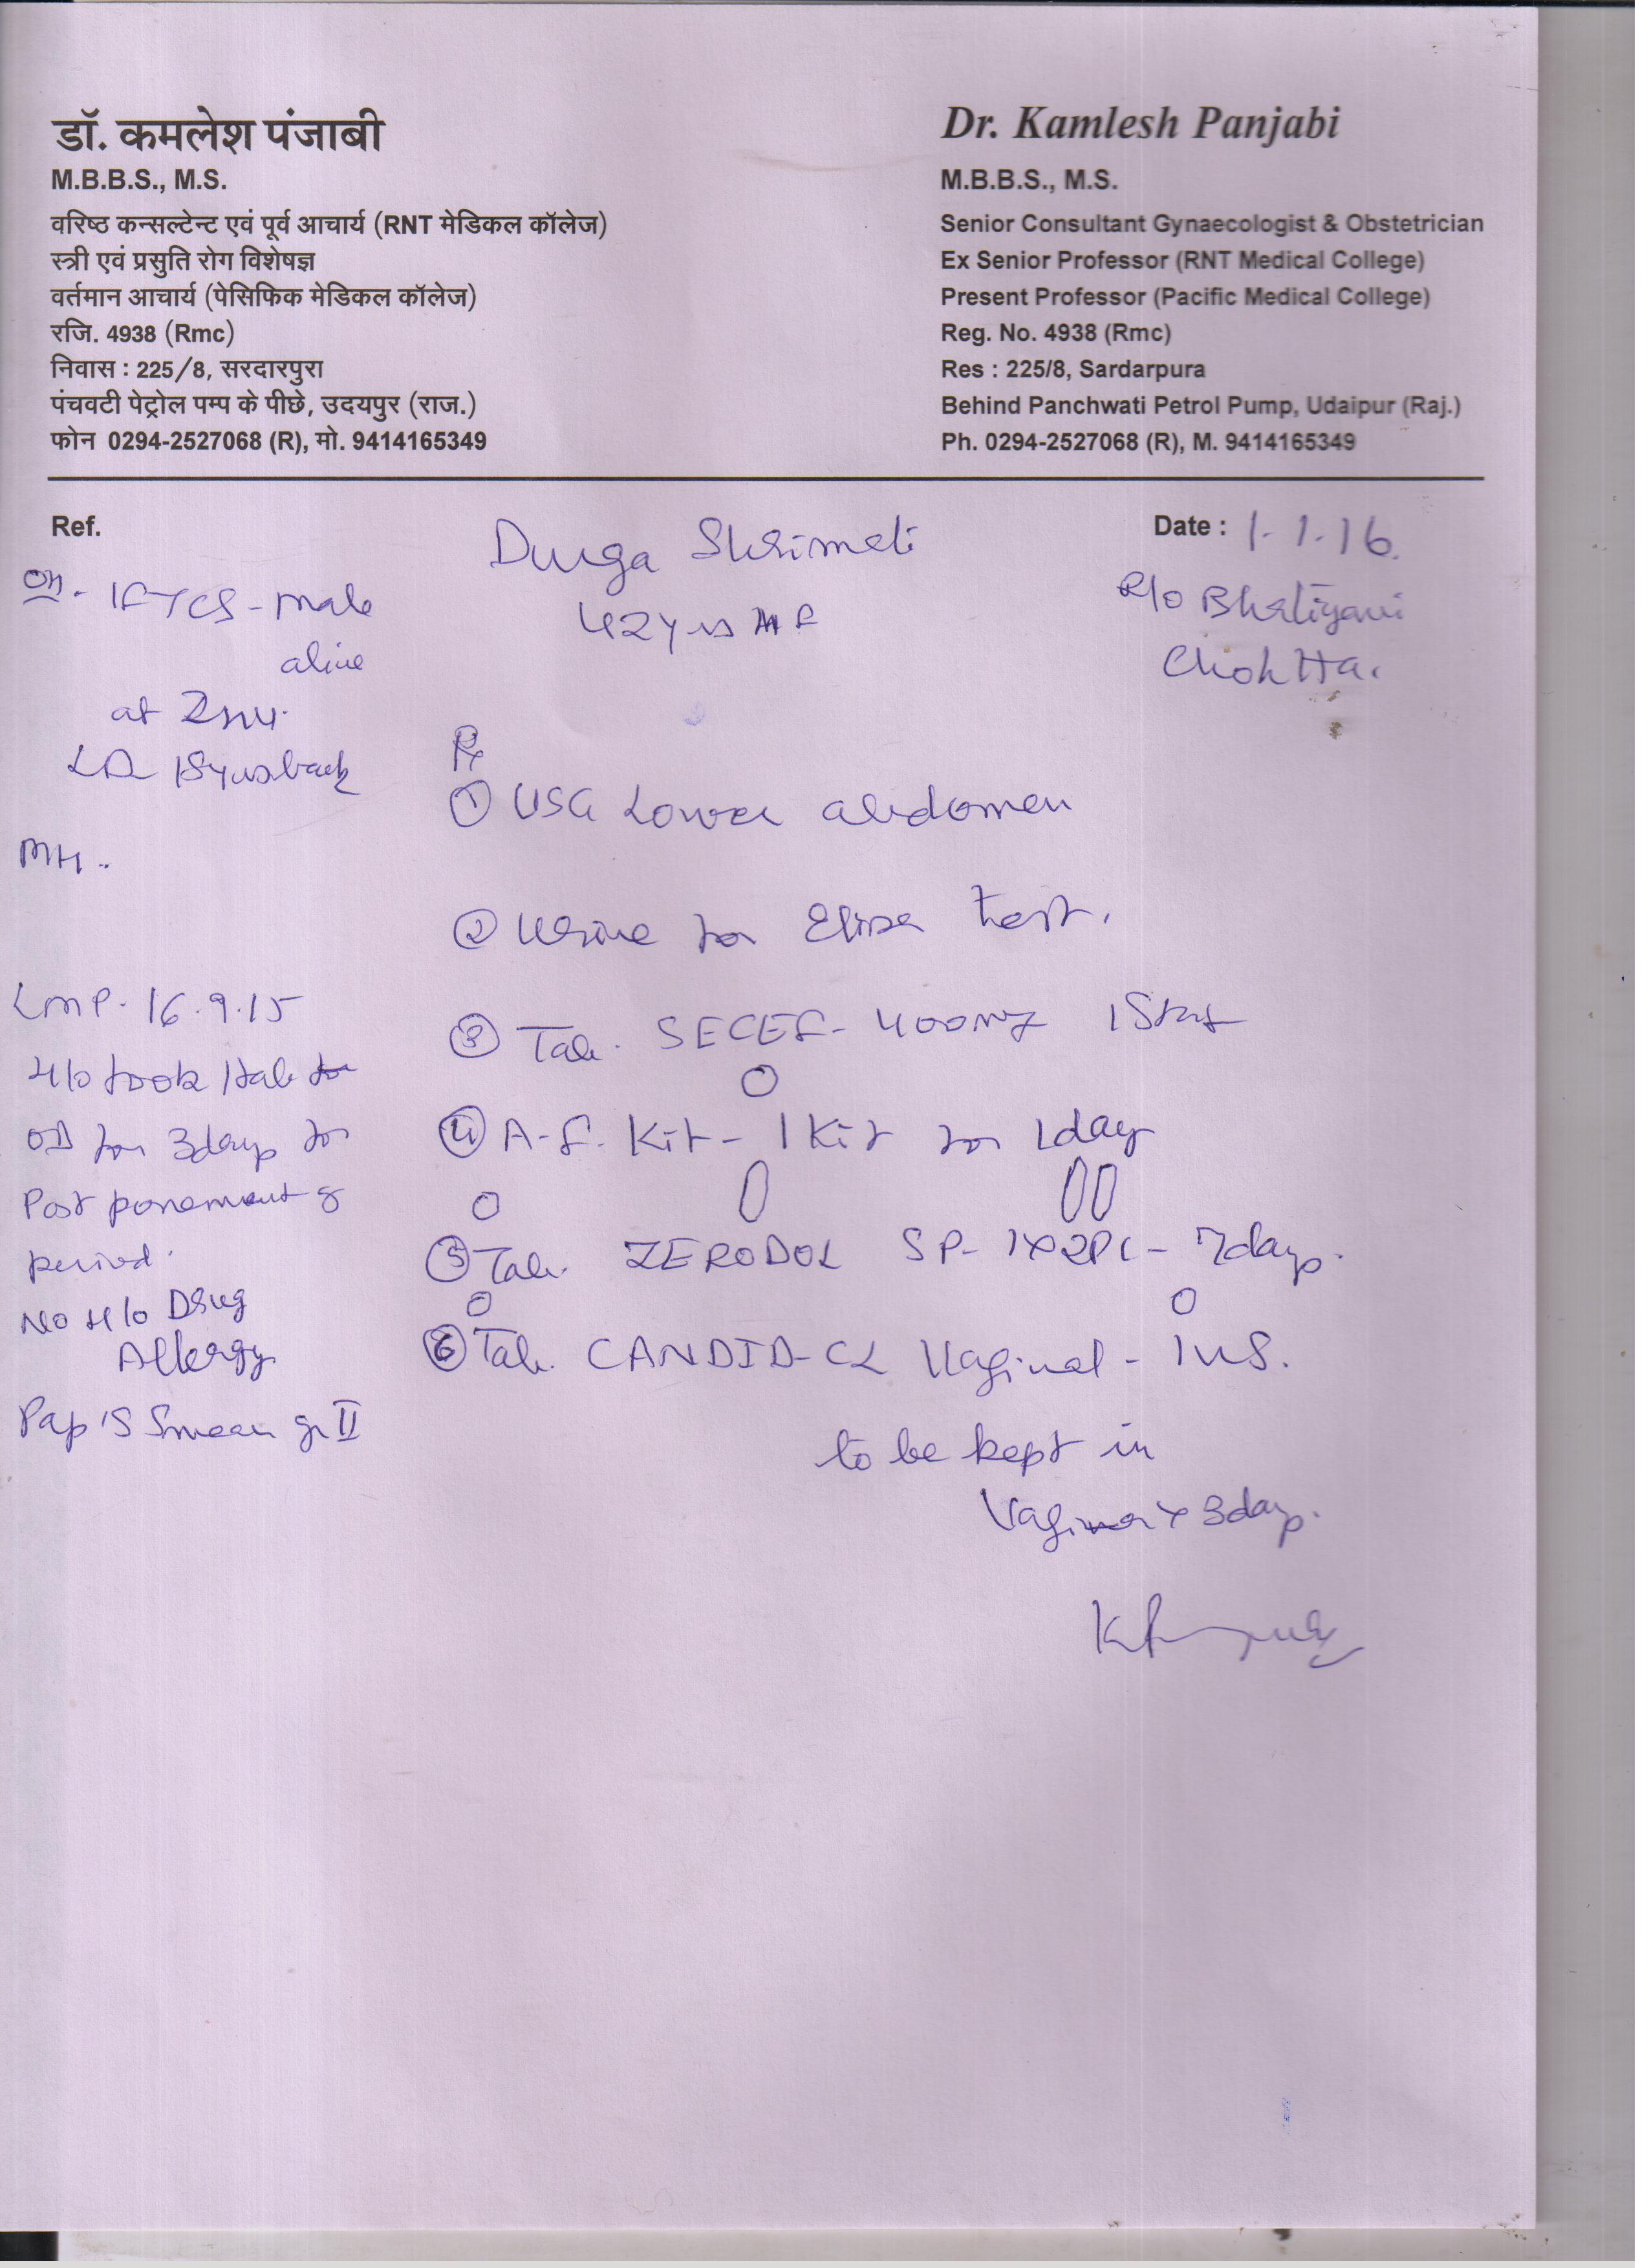 डॉ. कमलेश पंजाबी
M.B.B.S., M.S.
वरिष्ठ कन्सल्टेन्ट एवं पूर्व आचार्य (RNT मेडिकल कॉलेज)
स्त्री एवं प्रसुति रोग विशेषज्ञ
वर्तमान आचार्य (पेसिफिक मेडिकल कॉलेज)
रजि. 4938 (Rmc)
निवास : 225/8, सरदारपुरा
पंचवटी पेट्रोल पम्प के पीछे, उदयपुर (राज.)
फोन 0294-2527068 (R), मो. 9414165349
Dr. Kamlesh Panjabi
M.B.B.S., M.S.
Senior Consultant Gynaecologist & Obstetrician
Ex Senior Professor (RNT Medical College)
Present Professor (Pacific Medical College)
Reg. No. 4938 (Rmc)
Res : 225/8, Sardarpura
Behind Panchwati Petrol Pump, Udaipur (Raj.)
Ph. 0294-2527068 (R), M. 9414165349
Ref.
Durga Shrimali
42yrs F
Date : 1.1.16.
R/o Bhatiyani
Chohtta.
OH. 1FTCS - male
alive
at
LD yrs back
MH.
LMP. 16.9.15
H/o took 1tab
OD for 3days for
Post ponement of
period.
No H/o Drug
Allergy
Pap's Smear gr II
Rx
① USG Lower abdomen
② Urine for Elisa test.
③ Tab. SECEF - 400mg 1 Stat
④ A-F. Kit - 1 Kit for 1day
⑤ Tab. ZERODOL SP - 1x2PC - 7days.
⑥ Tab. CANDID-CL Vaginal - 1
to be kept in
Vagina x 3days.